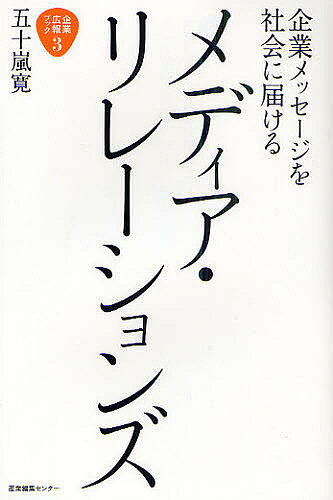 企業メッセージを
社会に届ける
メディア・
リレーションズ
企業
広報
ブック
3
五十嵐寛
産業編集センター